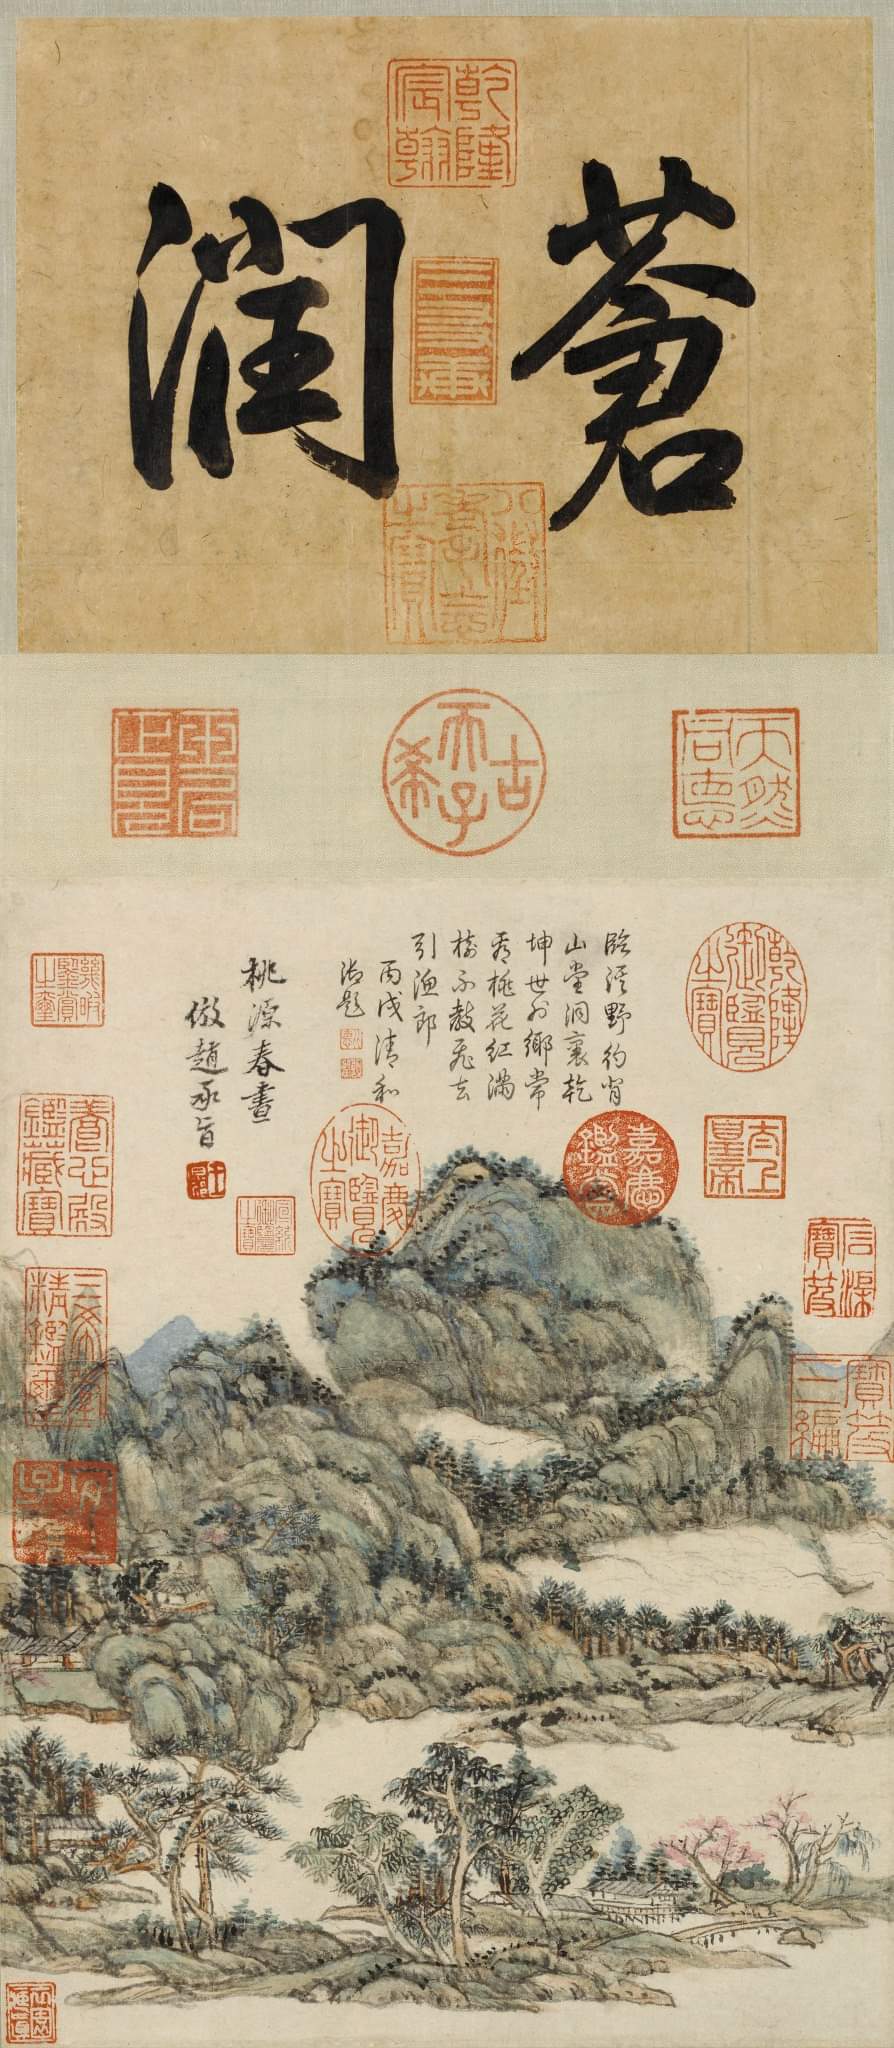 乾隆宸翰
蒼潤
八徵耄念之寶
古希天子
乾隆御覽之寶
太上皇帝
臨溪野彴肖
山堂洞裏乾
坤世外鄉常
看桃花紅滿
樹不教飛去
引漁郎
丙戌清和
御題
桃源春晝
倣趙承旨
嘉慶鑑賞
嘉慶御覽之寶
石渠寶笈
寶笈三編
養心殿鑑藏寶
三希堂精鑑璽
宜子孫